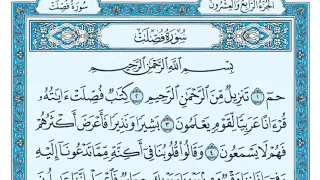 الجزء الرابع والعشرون
سورة فصلت
سُورَةُ فُصِّلَتْ
بِسْمِ اللَّهِ الرَّحْمَٰنِ الرَّحِيمِ
حمٓ ١ تَنزِيلٌ مِّنَ الرَّحْمَٰنِ الرَّحِيمِ ٢ كِتَٰبٌ فُصِّلَتْ ءَايَٰتُهُۥ
قُرْءَانًا عَرَبِيًّا لِّقَوْمٍ يَعْلَمُونَ ٣ بَشِيرًا وَنَذِيرًا فَأَعْرَضَ أَكْثَرُهُمْ
فَهُمْ لَا يَسْمَعُونَ ٤ وَقَالُوا۟ قُلُوبُنَا فِىٓ أَكِنَّةٍ مِّمَّا تَدْعُونَآ إِلَيْهِ